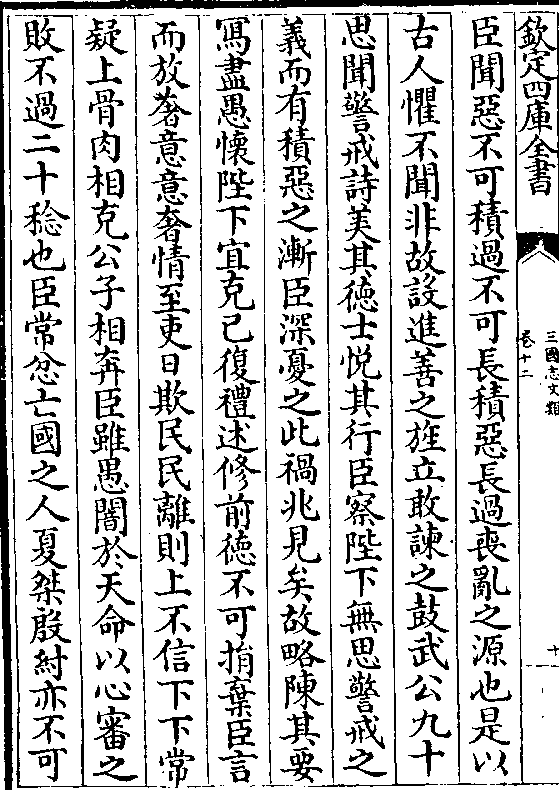 欽定四庫全書
三國志文類
卷十二
十
臣聞惡不可積過不可長積惡長過喪亂之源也是以
古人懼不聞非故設進善之旌立敢諫之鼓武公九十
思聞警戒詩美其徳士悦其行臣察陛下無思警戒之
義而有積惡之漸臣深憂之此禍兆見矣故略陳其要
冩盡愚懷陛下宜克己復禮述修前徳不可捐棄臣言
而放奢意意奢情至吏日欺民民離則上不信下下常
疑上骨肉相克公子相奔臣雖愚闇於天命以心審之
敗不過二十稔也臣常忿亡國之人夏桀殷紂亦不可